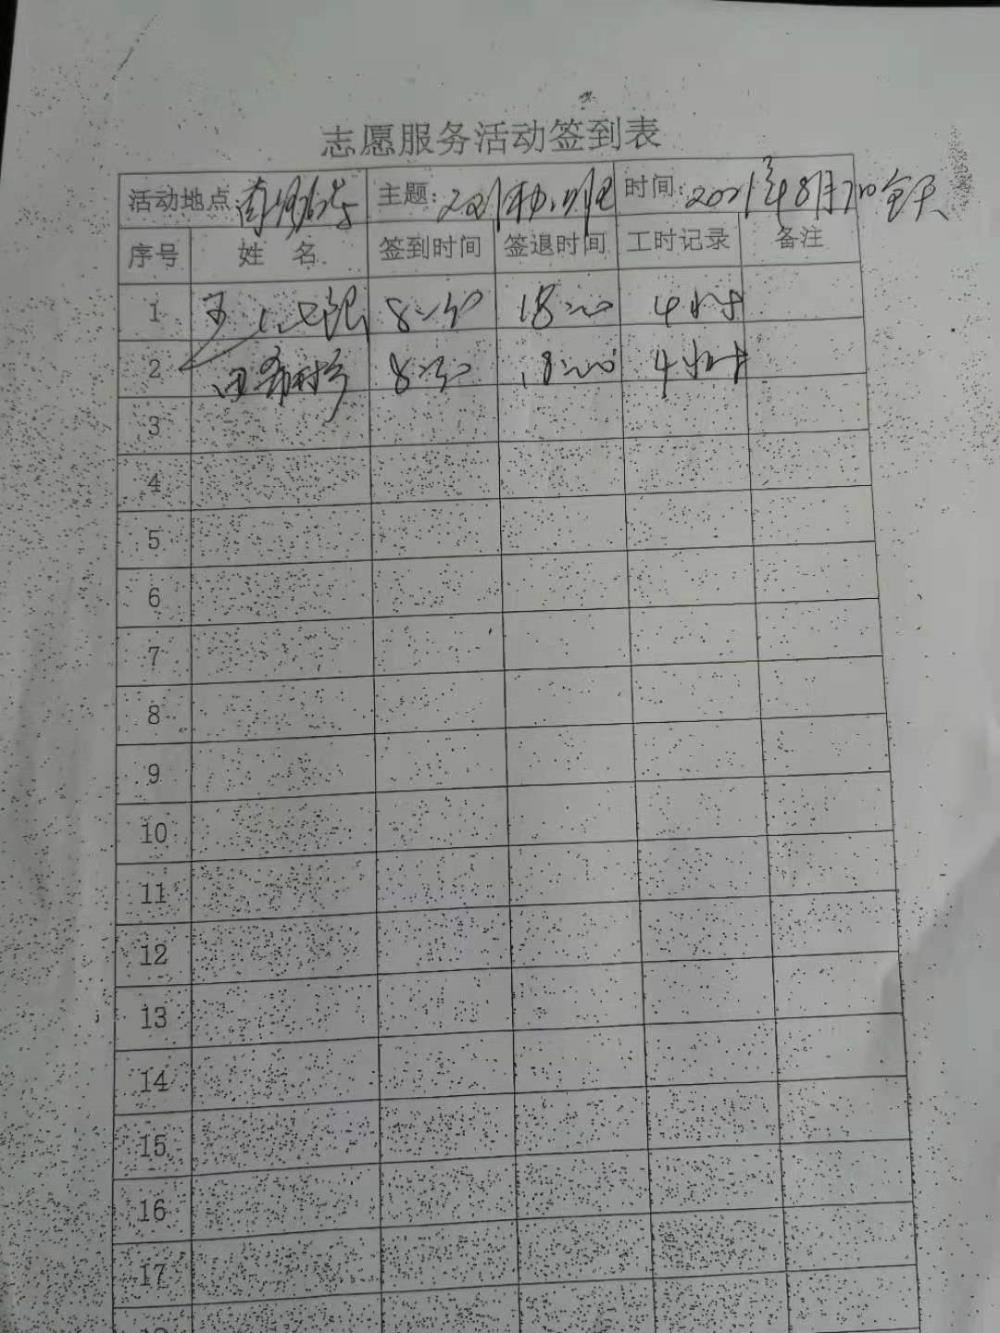 志愿服务活动签到表
活动地点: 主题: 时间: 2021年8月20 全天
序号 姓 名 签到时间 签退时间 工时记录 备注
1 8:30 18:00 4小时
2 8:30 18:00 4小时
3
4
5
6
7
8
9
10
11
12
13
14
15
16
17